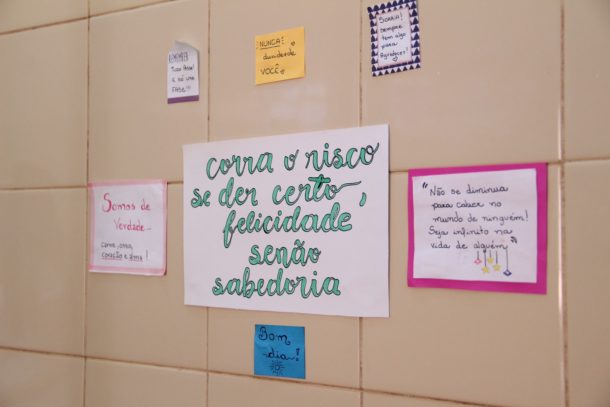 Tudo Passa!
é só uma
FASE!!!
NUNCA!
duvide de
VOCÊ.
SORRIA!
sempre
tem algo
para
Agradecer!
corra o risco
se der certo,
felicidade
senão
sabedoria
Somos de
Verdade...
carne, osso,
coração e alma!
"Não se diminua
para caber no
mundo de ninguém!
Seja infinito na
vida de alguém"
Bom
dia!